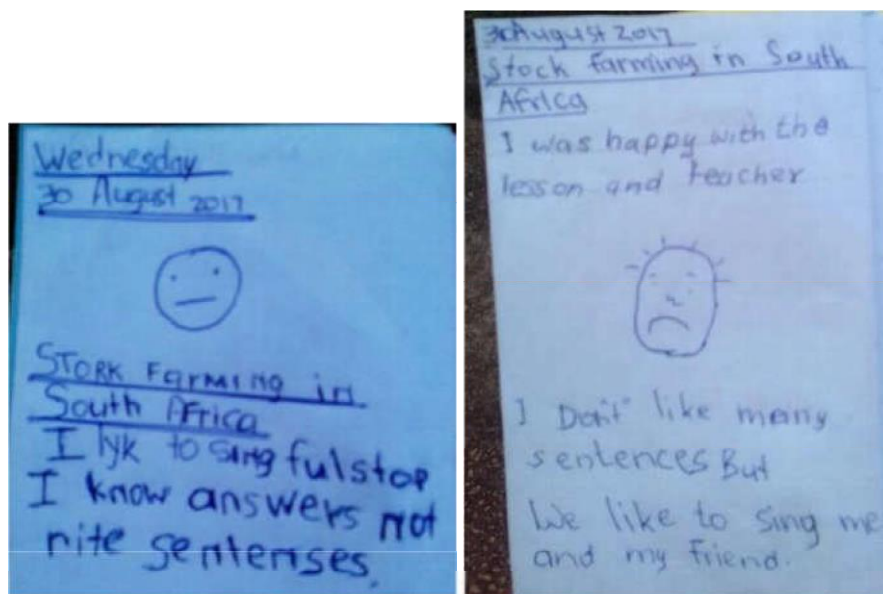 Wednesday
30 August 2017
STORK FARMING in
South AFrica
I lyk to sing fulstop
I know answers not
rite sentenses.
30 August 2017
Stock farming in South
Africa
I was happy with the
lesson and teacher
I Don't like many
sentences But
We like to sing me
and my friend.